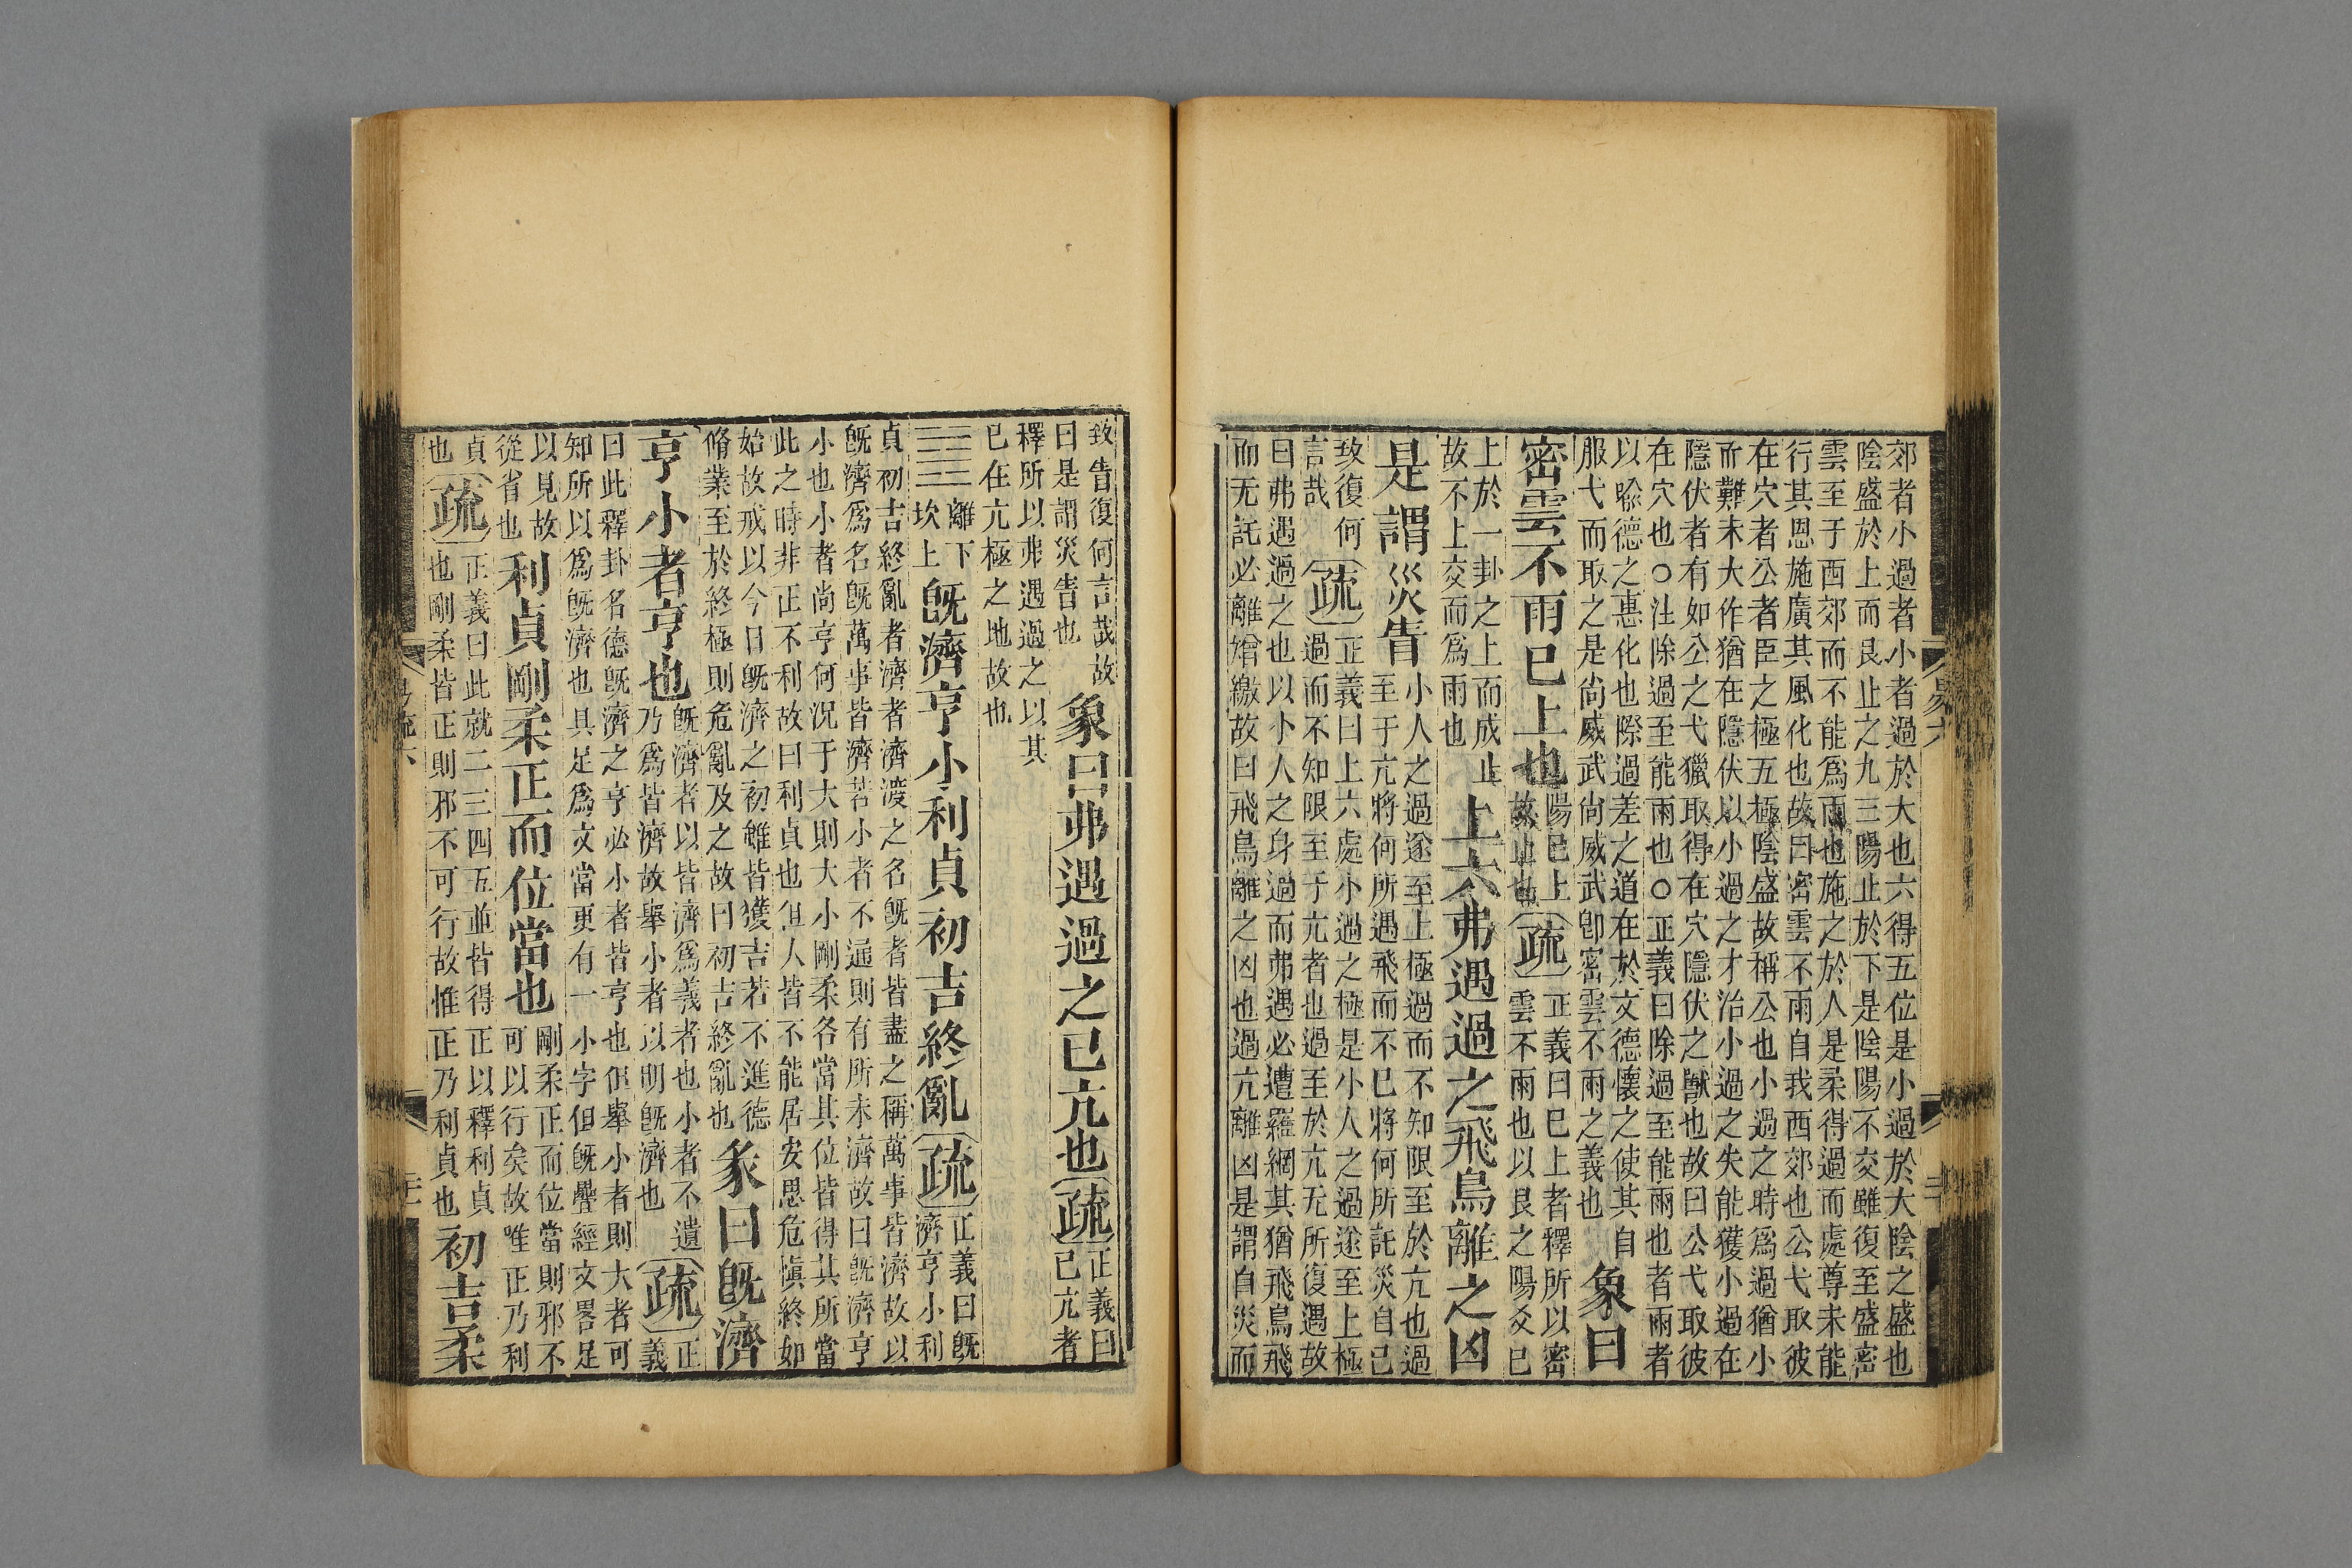 郊者小過者小者過於大也六得五位是小過於大陰之盛也
陰盛於上而艮止之九三陽止於下是陰陽不交雖復至盛密
雲至于西郊而不能爲雨也施之於人是柔得過而處尊未能
行其恩施廣其風化也故曰密雲不雨自我西郊也公弋取彼
在穴者公者臣之極五極陰盛故稱公也小過之時爲過猶小
而難未大作猶在隱伏以小過之才治小過之失能獲小過在
隱伏者有如公之弋獵取得在穴隱伏之獸也故曰公弋取彼
在穴也○注除過至能雨也○正義曰除過至能雨也者雨者
以喻德之惠化也除過差之道在於文德懷之使其自
服弋而取之是尚威武尚威武卽密雲不雨之義也
象曰
密雲不雨已上也
陽已上
故止也
疏
正義曰已上者釋所以密
雲不雨也以艮之陽爻已
上於一卦之上而成止
故不上交而爲雨也
上六弗遇過之飛鳥離之凶
是謂災眚
小人之過遂至上極過而不知限至於亢也過
至于亢將何所遇飛而不已將何所託災自己
致復何
言哉
疏
正義曰上六處小過之極是小人之過遂至上極
過而不知限至于亢者也過至於亢无所復遇故
曰弗遇過之也以小人之身過而弗遇必遭羅網其猶飛鳥飛
而无託必離矰繳故曰飛鳥離之凶也過亢離凶是謂自災而
致眚復何言哉故
曰是謂災眚也
象曰弗遇過之已亢也
疏
正義曰
已亢者
釋所以弗遇過之以其
已在亢極之地故也
離下
坎上
旣濟亨小利貞初吉終亂
疏
正義曰旣
濟亨小利
貞初吉終亂者濟者濟渡之名旣者皆盡之稱萬事皆濟故以
旣濟爲名旣萬事皆濟若小者不通則有所未濟故曰旣濟亨
小也小者尚亨何況于大則大小剛柔各當其位皆得其所當
此之時非正不利故曰利貞也但人皆不能居安思危愼終如
始故戒以今日旣濟之初雖皆獲吉若不進德
脩業至於終極則危亂及之故曰初吉終亂也
彖曰旣濟
亨小者亨也
旣濟者以皆濟爲義者也小者不遺
乃爲皆濟故舉小者以明旣濟也
疏
正
義
曰此釋卦名德旣濟之亨必小者皆亨也但舉小者則大者可
知所以爲旣濟也具足爲文當更有一小字但旣疊經文畧足
以見故
從省也
利貞剛柔正而位當也
剛柔正而位當則邪不
可以行矣故唯正乃利
貞
也
疏
正義曰此就二三四五並皆得正以釋利貞
也剛柔皆正則邪不可行故惟正乃利貞也
初吉柔